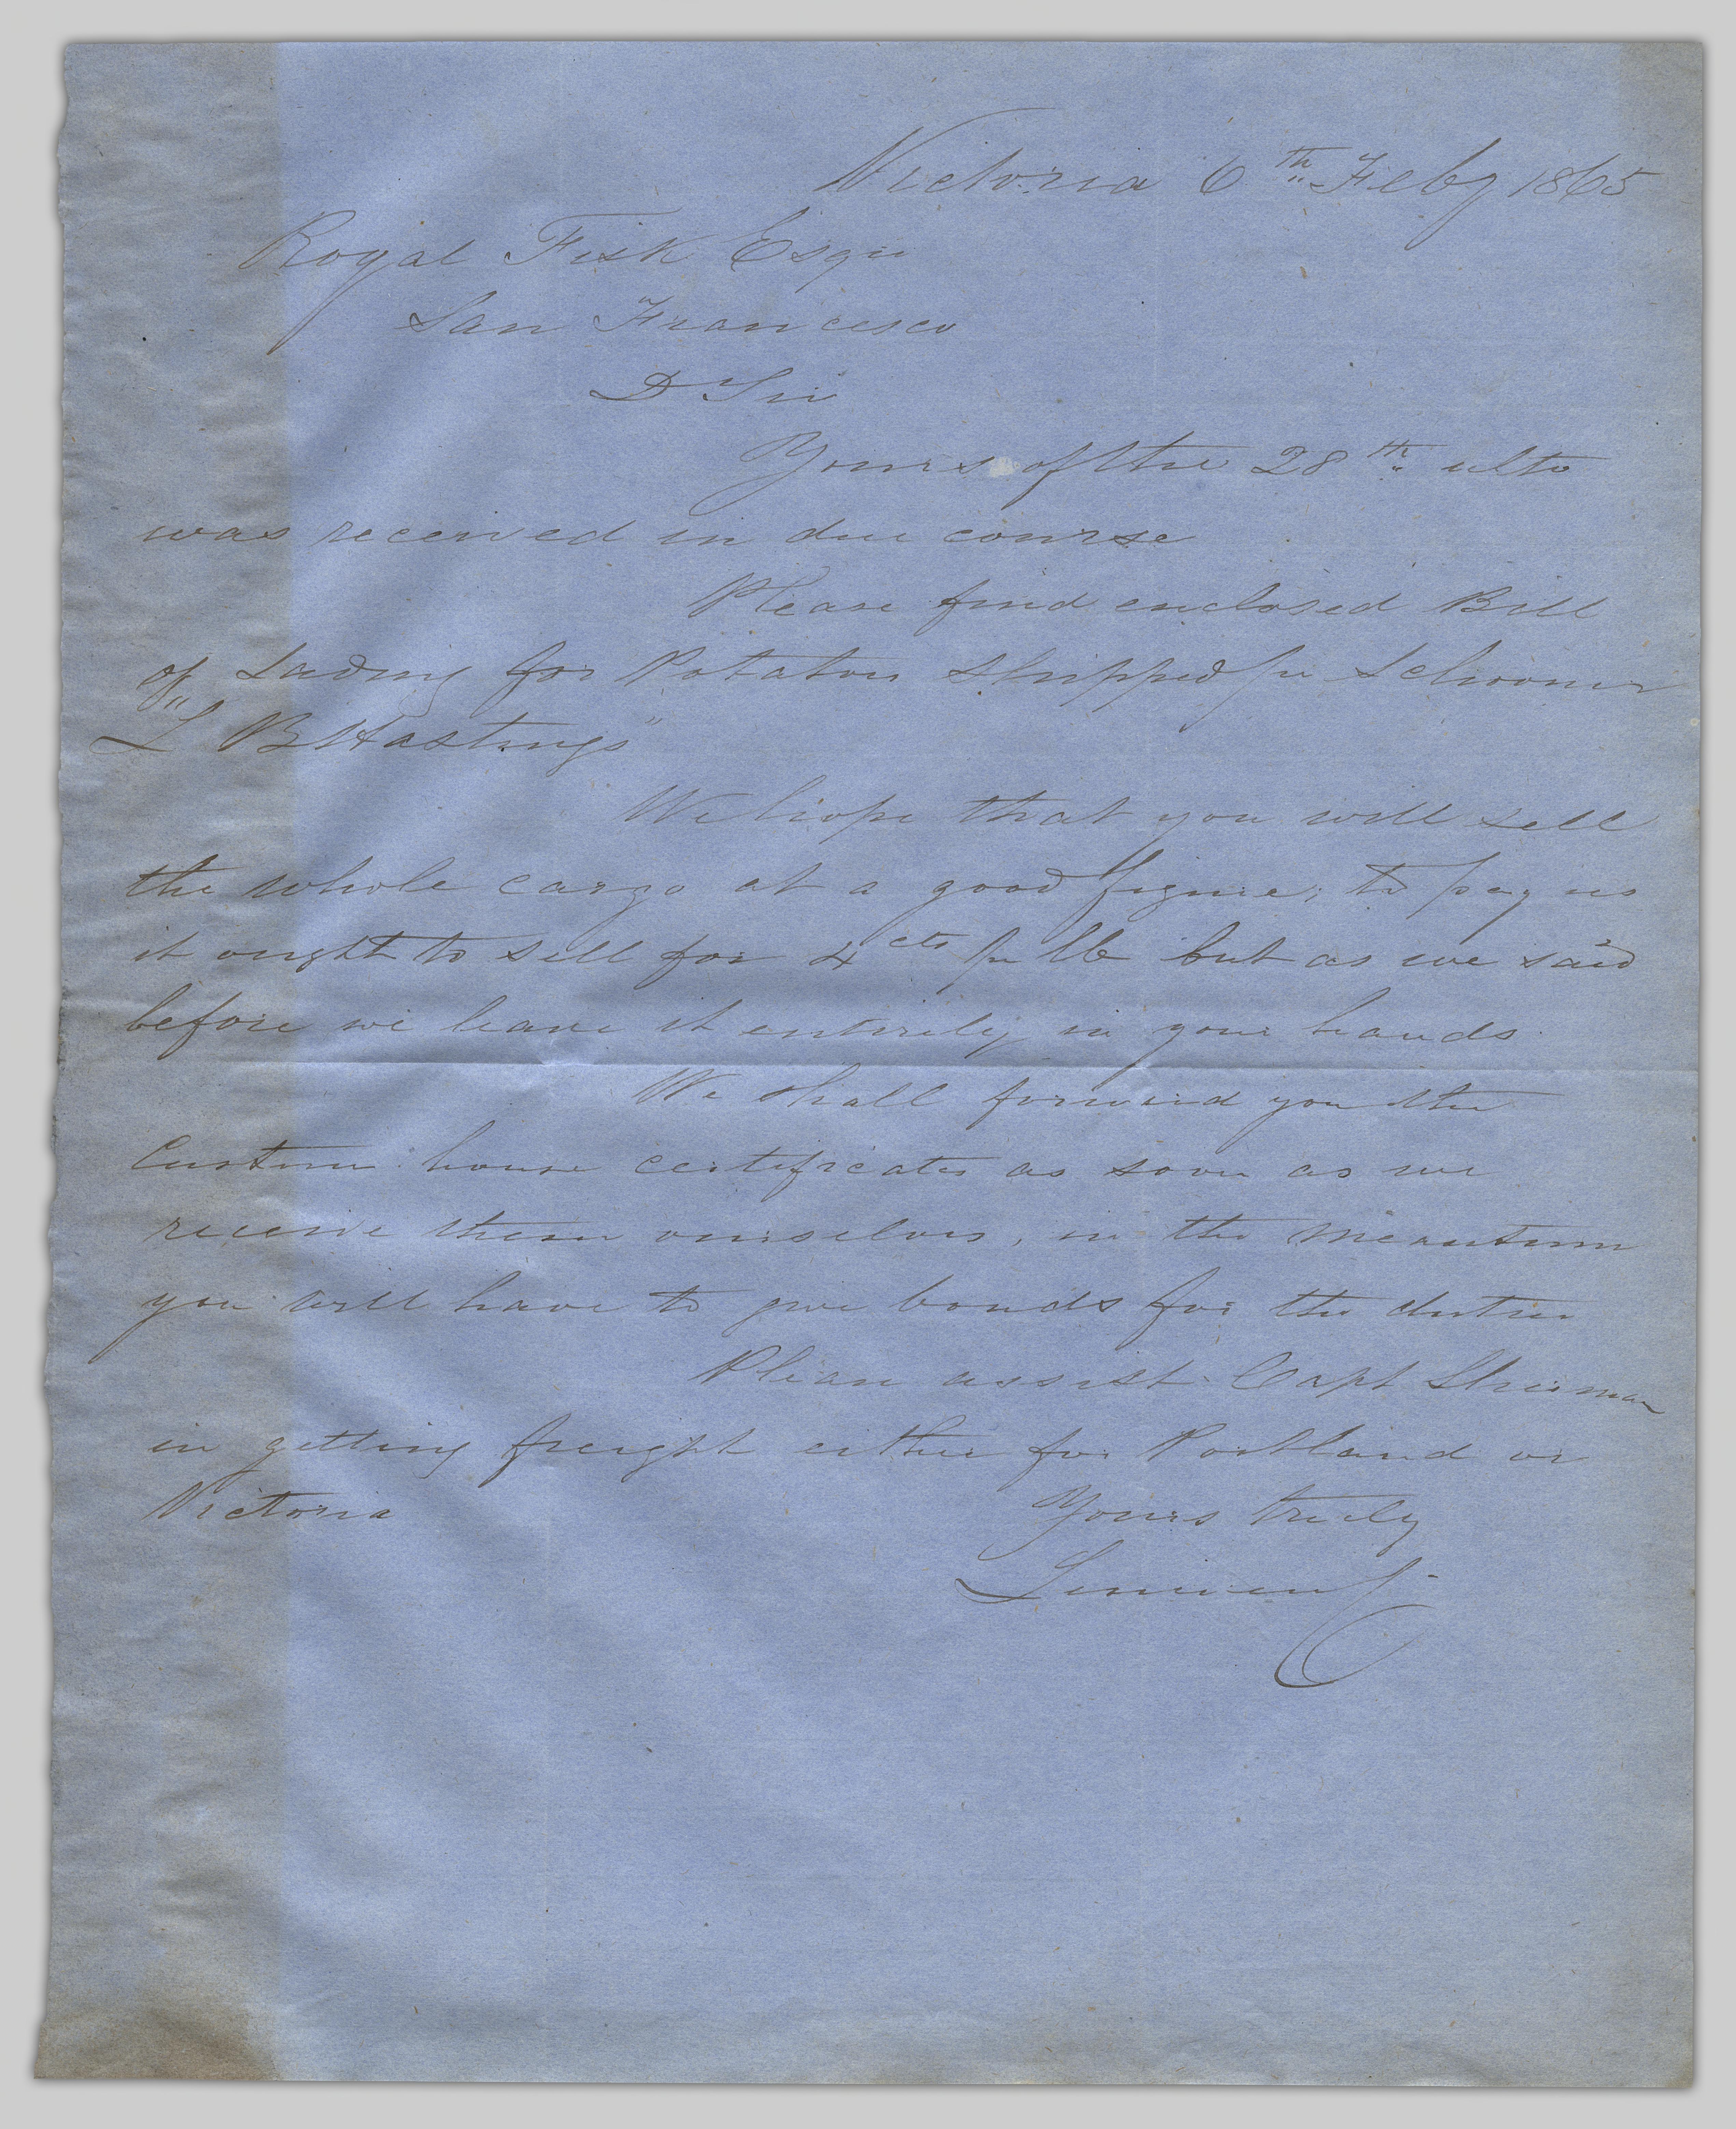 Victoria 6th Feby 1865
Royal Fisk Esqr
San Francisco
D Sir
Yours of the 28th ulto
was received in due course
Please find enclosed Bill
of Lading for Potatoes shipped pr Schooner
"L B Hastings"
We hope that you will sell
the whole cargo at a good figure; to pay us
it ought to sell for 4 cts pr lb but as we said
before we leave it entirely in your hands.
We shall forward you the
Custom house certificates as soon as we
receive them ourselves, in the meantime
you will have to give bonds for the duties
Please assist Capt
in getting freight either for Portland or
Victoria Yours truly